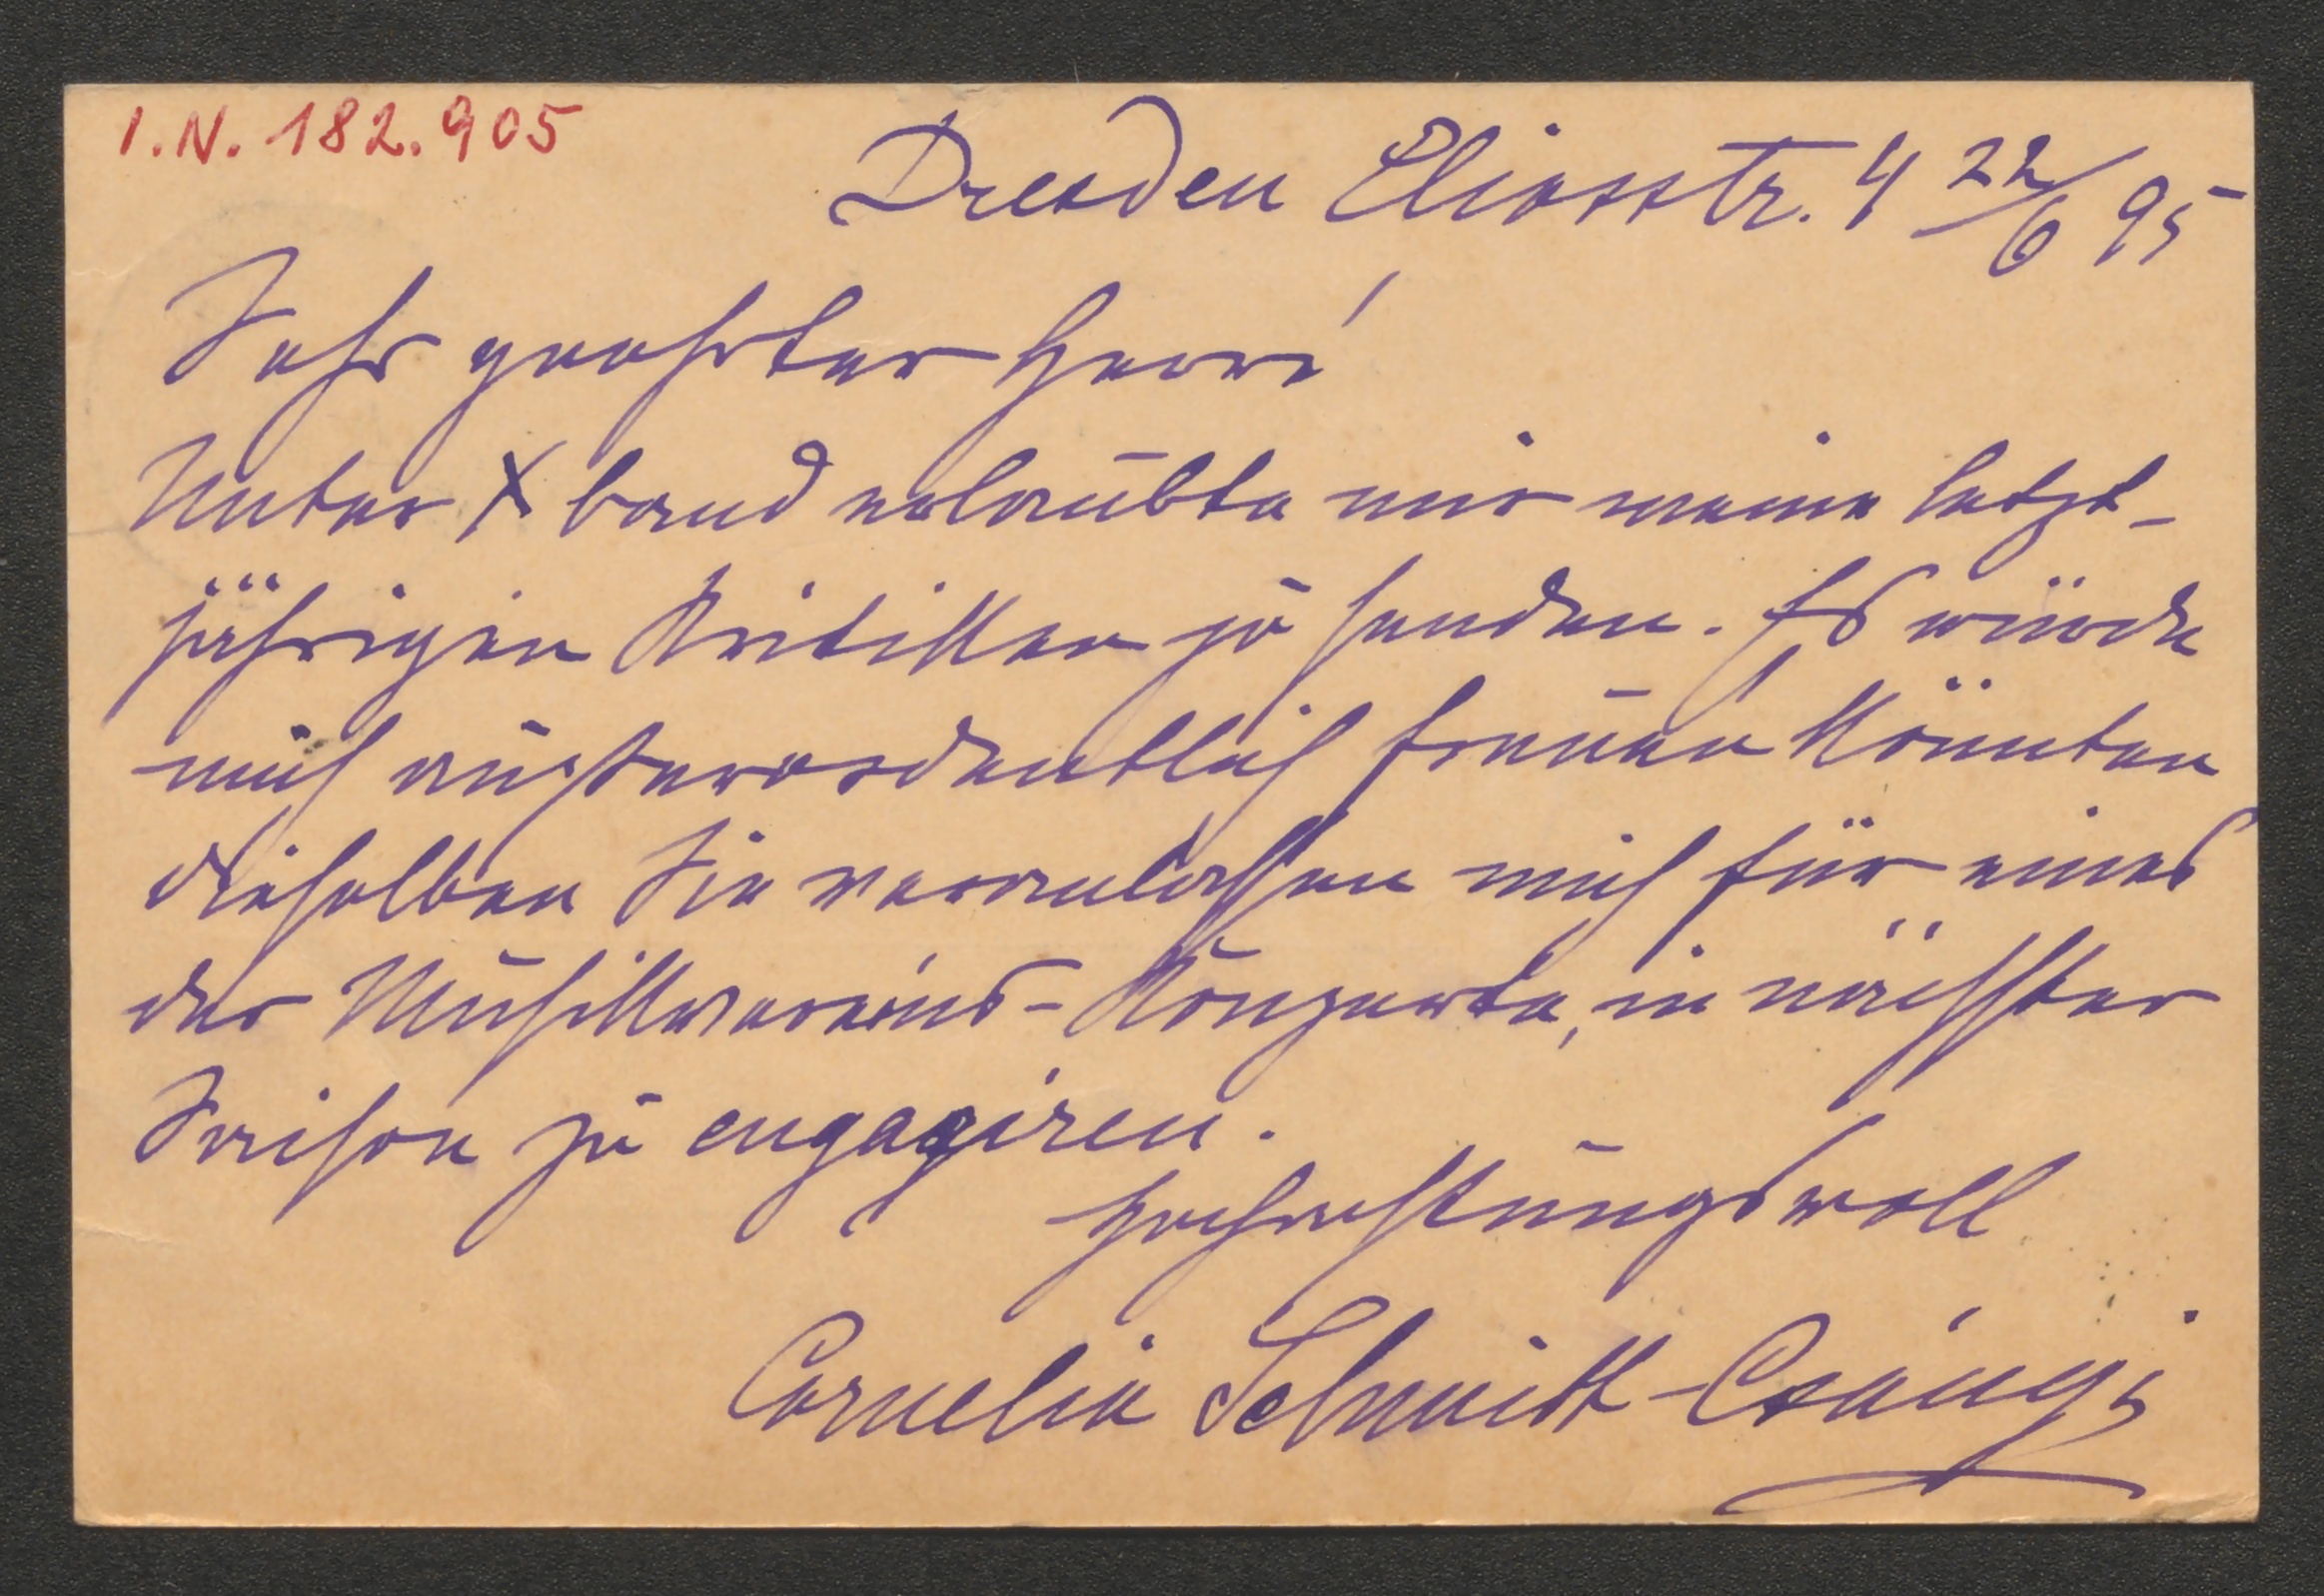 I.N. 182.905
Dresden Eliasstr. 4 22/6 95
Sehr geehrter Herr!
Unter X band erlaubte mir meine letzt-
jährigen Kritikken zu senden. Es würde
mich außerordentlich freuen könnten
dieselben Sie veranlassen mich für eines
der Musikvereins-Konzerte, in nächster
Saison zu engagiren.
Hochachtungsvoll
Cornelia Schmitt-Csányi